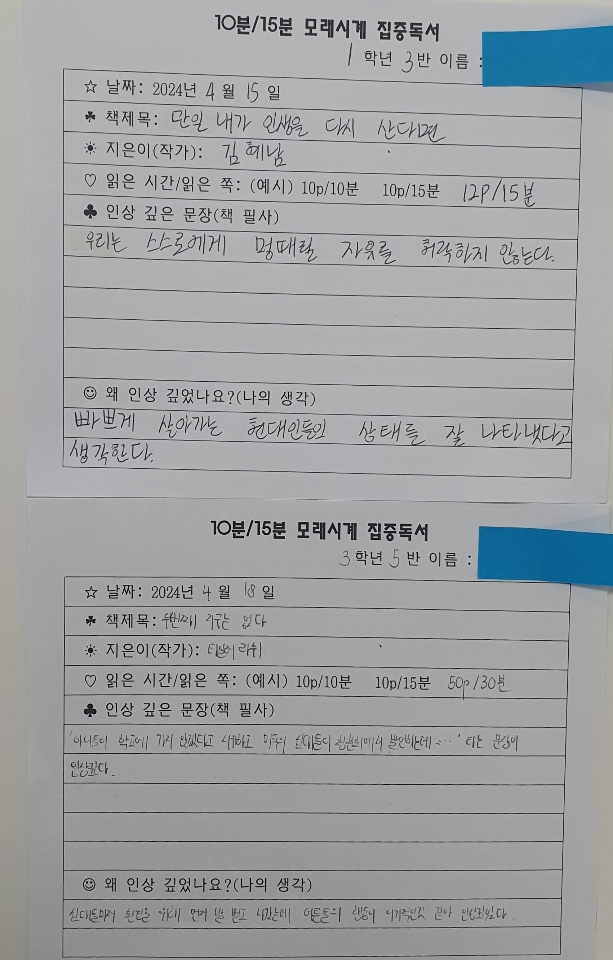 10분/15분 모래시계 집중독서
1 학년 3반 이름 :
☆ 날짜: 2024년 4 월 15 일
☘ 책제목: 만일 내가 인생을 다시 산다면
☀ 지은이(작가): 김혜남
♡ 읽은 시간/읽은 쪽: (예시) 10p/10분 10p/15분 12P/15분
♣ 인상 깊은 문장(책 필사)
우리는 스스로에게 멍때릴 자유를 허락하지 않는다.
☺ 왜 인상 깊었나요?(나의 생각)
빠쁘게 살아가는 현대인들의 상태를 잘 나타냈다고
생각한다.
10분/15분 모래시계 집중독서
3학년 5 반 이름 :
☆ 날짜: 2024년 4 월 18 일
☘ 책제목: 두번째 지구는 없다
☀ 지은이(작가): 타일러 라쉬
♡ 읽은 시간/읽은 쪽: (예시) 10p/10분 10p/15분 50p/30분
♣ 인상 깊은 문장(책 필사)
학교에 가지 않겠다고 10대들이 발언하는데 ……' 라는 문장이
인상깊다.
☺ 왜 인상 깊었나요?(나의 생각)
10대들마저 환경을 위해 먼저 발 벗고 어른들의 행동이 이기적인것 같아 인상깊었다.